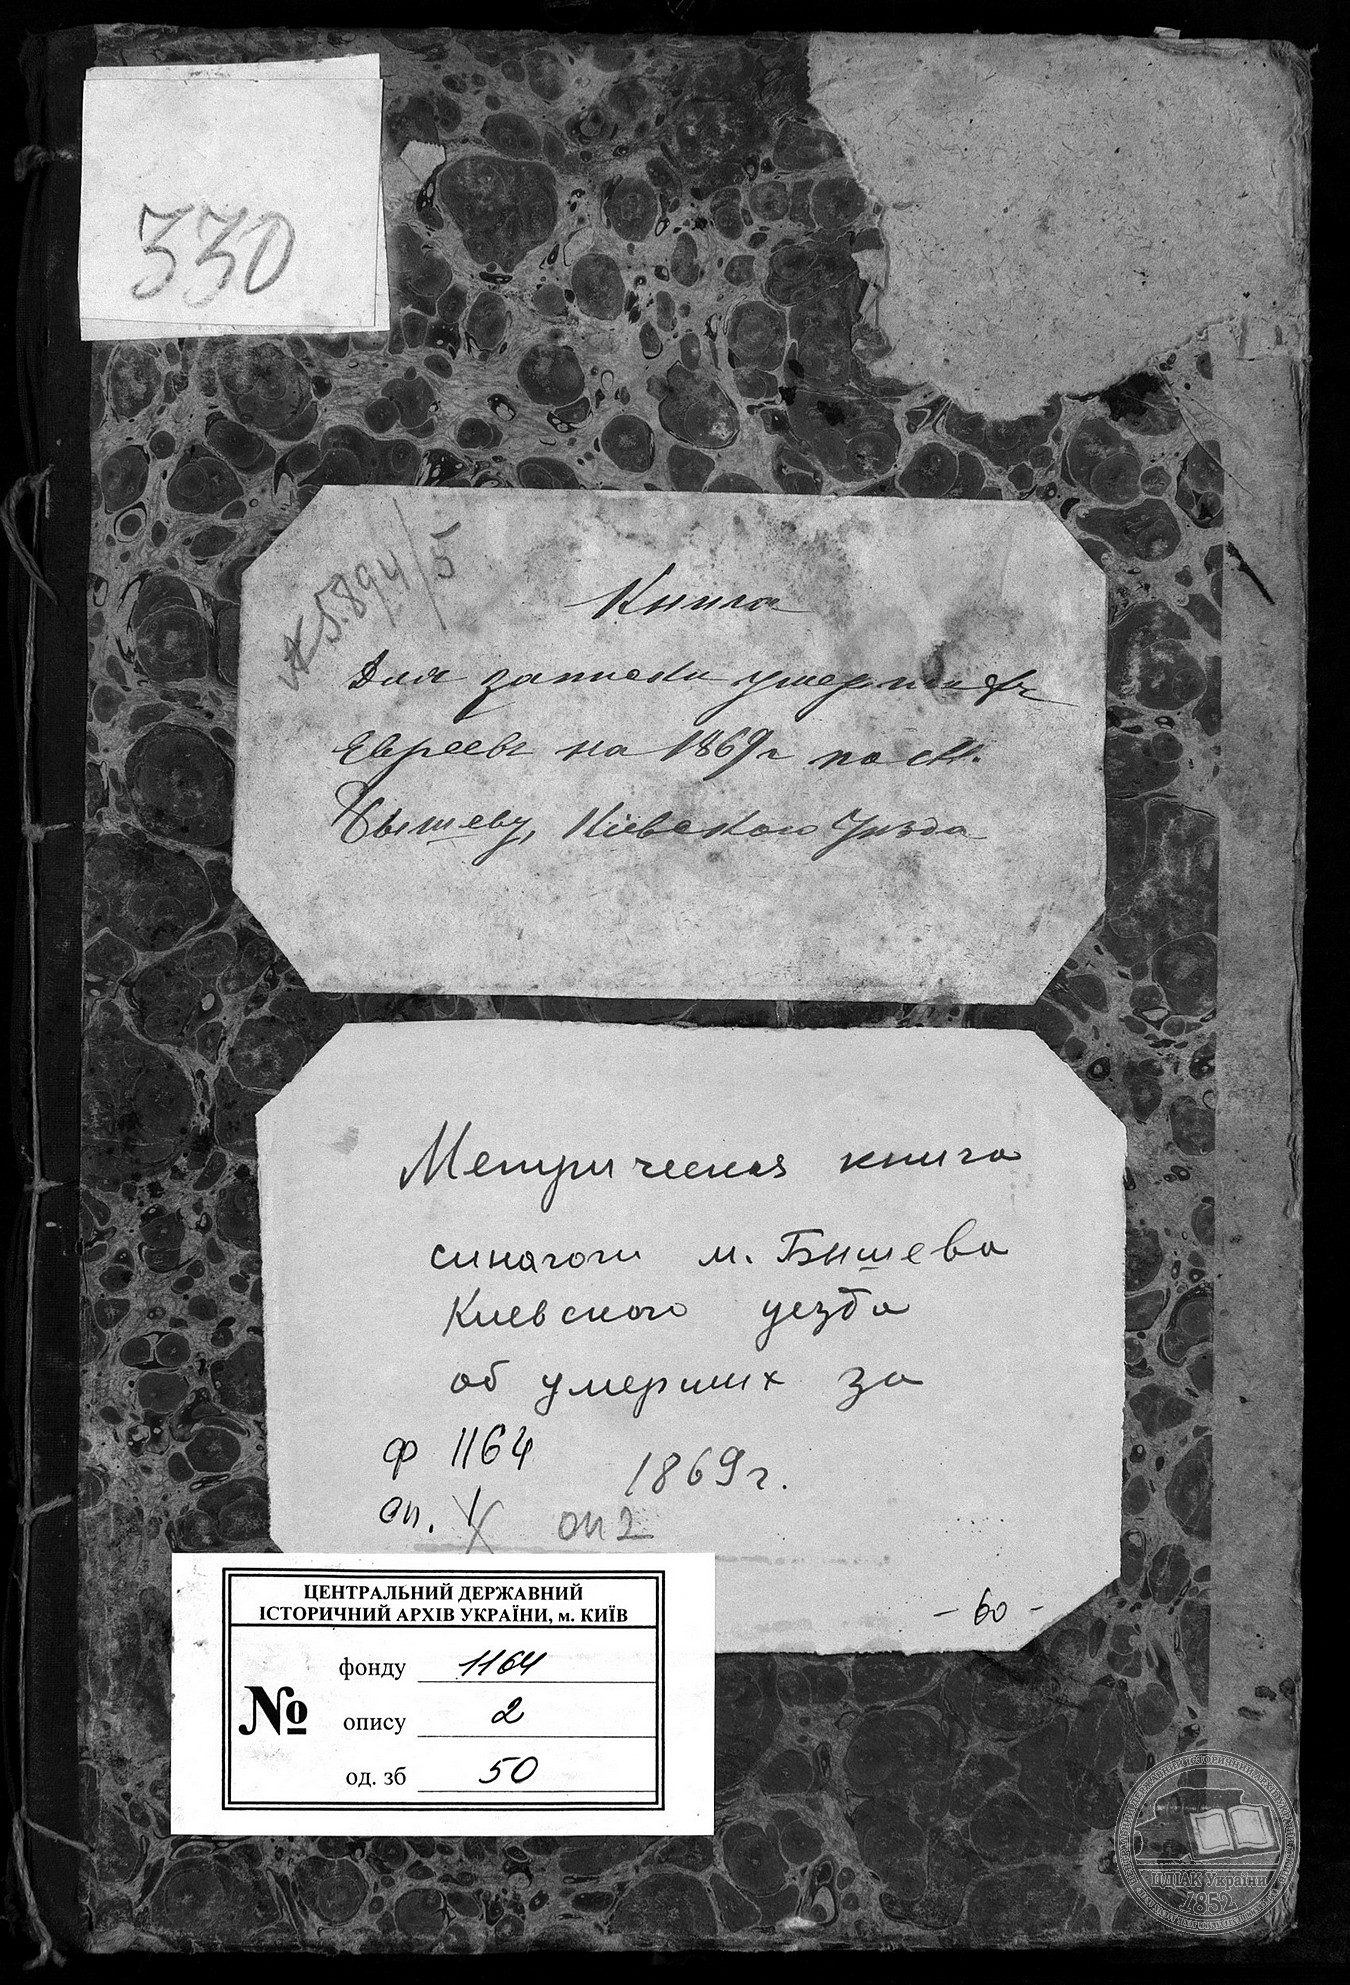 330
№ 5.894/5
Книга
Для записки умершихъ
Евреевъ на 1869 г по м.
Бышеву, Кіевского Уѣзда
Метрическая книга
синагоги м. Бышева
Киевского уезда
об умерших за
ф 1164
1869 г.
оп. 1 оп 2
- 60 -
ЦЕНТРАЛЬНИЙ ДЕРЖАВНИЙ
ІСТОРИЧНИЙ АРХІВ УКРАЇНИ, м. КИЇВ
№
фонду 1164
опису 2
од. зб 50
ЦДІАК України
1852